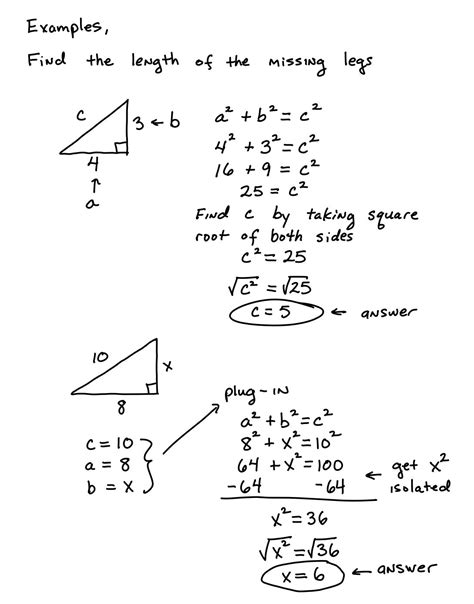 Examples,
Find the length of the missing legs
c
3 ← b
4
↑
a
a² + b² = c²
4² + 3² = c²
16 + 9 = c²
25 = c²
Find c by taking square
root of both sides
c² = 25
√c² = √25
c = 5 ← answer
10
x
8
c = 10
a = 8
b = x
plug-in
a² + b² = c²
8² + x² = 10²
64 + x² = 100
-64 -64
← get x²
isolated
x² = 36
√x² = √36
x = 6 ← answer